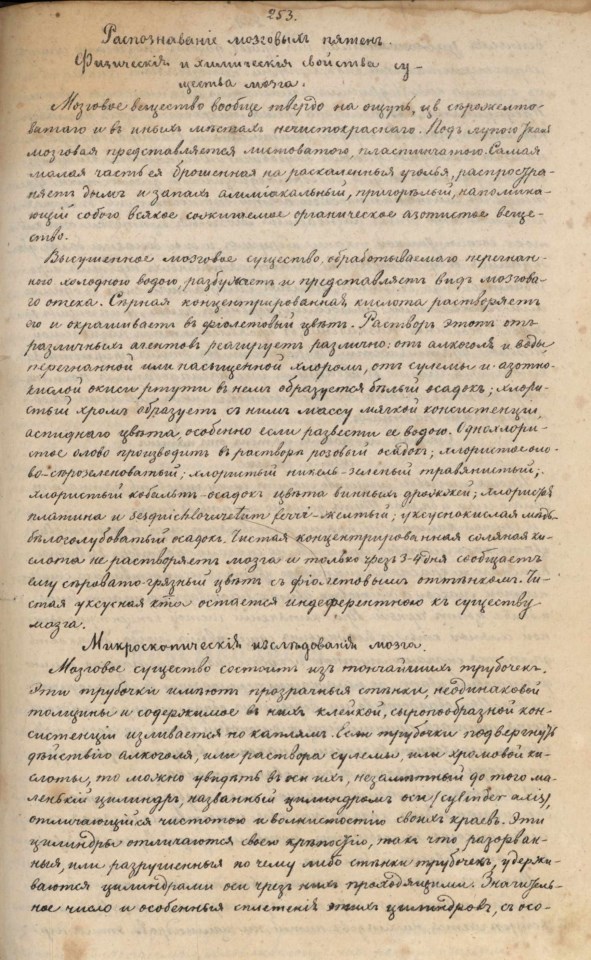 253.
Распознаваніе мозговыхъ пятенъ.
Физическія и химическія свойства су-
щества мозга.
Мозговое вещество вообще твердо на ощупь, цв. сѣрожелто-
ватаго и въ иныхъ мѣстахъ нечистокраснаго. Подъ лупою ткань
мозговая представляется листоватою, пластинчатою. Самая
малая часть ея брошенная на раскаленные уголья, распростра-
няетъ дымъ и запахъ амміакальный, пригорѣлый, напомина-
ющій собою всякое сожигаемое органическое азотистое веще-
ство.
Высушенное мозговое существо, обработываемаго перегнан-
ною холодною водою, разбухаетъ и представляетъ видъ мозгова-
го отека. Сѣрная концентрированная кислота растворяетъ
его и окрашиваетъ въ фіолетовый цвѣтъ. Растворъ этотъ отъ
различныхъ агентовъ реагируетъ различно: отъ алкоголя и воды,
перегнанной или насыщенной хлоромъ, отъ сулемы и азотно-
кислой окиси ртути въ немъ образуется бѣлый осадокъ; хлори-
стый хромъ образуетъ съ нимъ массу мягкой консистенціи
аспиднаго цвѣта, особенно если развести ее водою. Однохлори-
стое олово производитъ въ растворѣ розовый осадокъ; хлористое оло-
во-сѣрозеленоватый; хлористый никель-зеленый травянистый;
хлористый кобальтъ-осадокъ цвѣта винныхъ дрожжей; хлористая
платина и sesquichloruretum ferri-желтый; уксуснокислая мѣдь-
бѣлоголубоватый осадокъ. Чистая концентрированная соляная ки-
слота не растворяетъ мозга и только чрезъ 3-4 дня сообщаетъ
ему сѣровато-грязный цвѣтъ съ фіолетовымъ оттѣнкомъ. Чи-
стая уксусная кта остается индеферентною къ существу
мозга.
Микроскопическія изслѣдованія мозга.
Мозговое существо состоитъ изъ тончайшихъ трубочекъ.
Эти трубочки имѣютъ прозрачныя стѣнки, неодинаковой
толщины и содержимое въ нихъ клейкой, сыропообразной кон-
систенціи изливается по каплямъ. Если трубочки подвергнуть
дѣйствію алкоголя, или раствора сулемы, или хромовой ки-
слоты, то можно увидѣть въ оси ихъ, незамѣтный до того ма-
ленькій цилиндръ, названный цилиндромъ оси (cylinder axis),
отличающійся чистотою и волнистостію своихъ краевъ. Эти
цилиндры отличаются своею крѣпостію, такъ что разорван-
ныя, или разрушенныя по чему либо стѣнки трубочекъ, удержи-
ваются цилиндрами оси чрезъ нихъ проходящими. Значитель-
ное число и особенныя сплетенія этихъ цилиндровъ, съ осо-